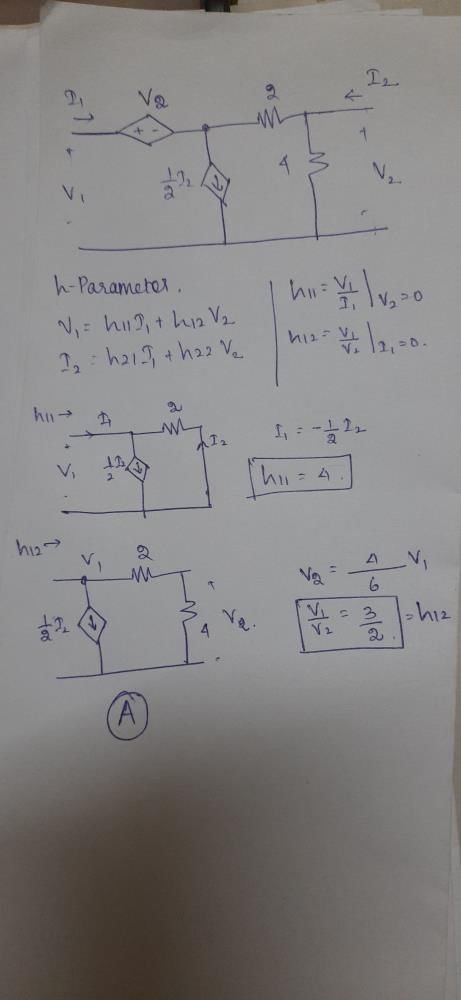 I₁ V₂ 2 I₂
+ - +
+ ½I₂ 4 V₂
V₁
- -
h-Parameter.
V₁ = h11 I₁ + h12 V₂
I₂ = h21 I₁ + h22 V₂
h11 = V₁/I₁ | V₂=0
h12 = V₁/V₂ | I₁=0.
h11→ I₁ 2
+ V₁ - ½I₂ I₂
I₁ = -½ I₂
h11 = 4.
h12→ V₁ 2
½I₂ 4 + V₂. -
V₂ = 4/6 V₁
V₁/V₂ = 3/2. = h12
A